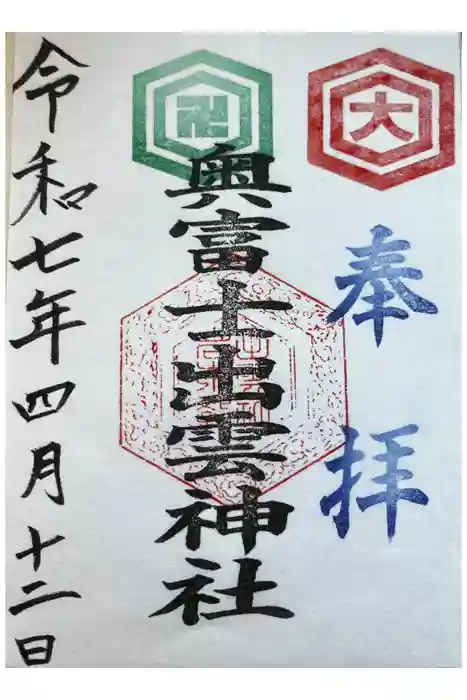 大
奉拝
卍
奥富士出雲神社
令和七年四月十二日